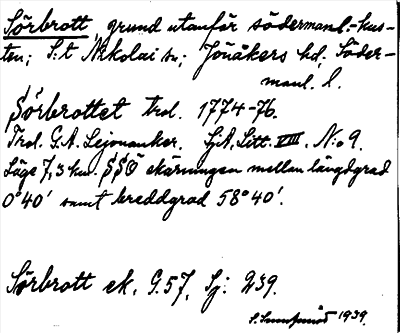 Sörbrott, grund utanför södermanl.-kus-
ten; S:t Nikolai sn; Jönåkers hd, Söder-
manl. l.
Sörbrottet trol. 1774-76.
Trol. G.A. Lejonanker. SjA, Litt. VIII. N:o 9.
Läge 7,3 km. SSÖ skärningen mellan längdgrad
0°40' samt breddgrad 58°40'.
Sörbrott ek. G.57, Sj: 239.
1939.